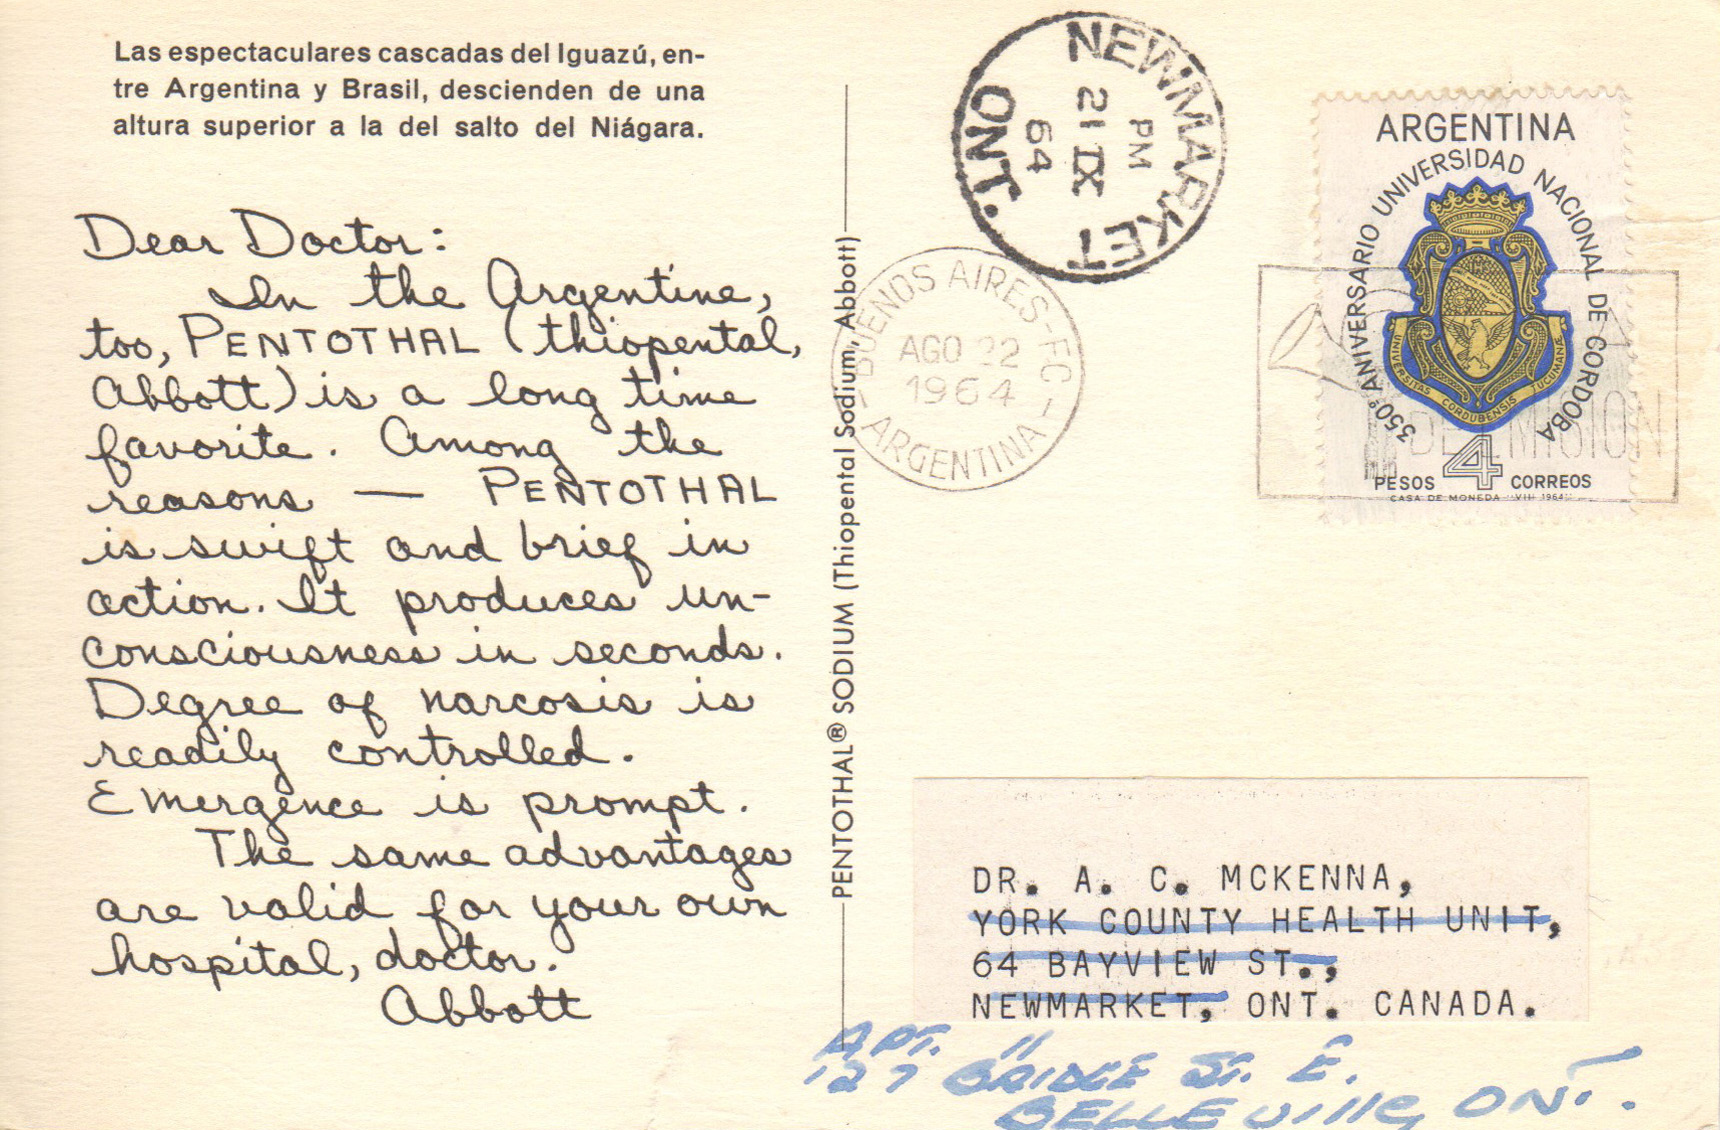 Las espectaculares cascadas del Iguazú, en-
tre Argentina y Brasil, descienden de una
altura superior a la del salto del Niágara.
Dear Doctor:
In the Argentine,
too, PENTOTHAL (thiopental,
Abbott) is a long time
favorite. Among the
reasons — PENTOTHAL
is swift and brief in
action. It produces un-
consciousness in seconds.
Degree of narcosis is
readily controlled.
Emergence is prompt.
The same advantages
are valid for your own
hospital, doctor.
Abbott
PENTOTHAL® SODIUM (Thiopental Sodium, Abbott)
NEWMARKET
PM
21 IX
64
ONT.
BUENOS AIRES-FC-
AGO 22
1964
ARGENTINA
ARGENTINA
350º ANIVERSARIO UNIVERSIDAD NACIONAL DE CORDOBA
UNIVERSITAS CORDUBENSIS TUCUMANÆ
4
PESOS CORREOS
CASA DE MONEDA VIII 1964
DR. A. C. MCKENNA,
YORK COUNTY HEALTH UNIT,
64 BAYVIEW ST.,
NEWMARKET, ONT. CANADA.
APT. 11
127 BRIDGE ST. E.
BELLEVILLE, ONT.